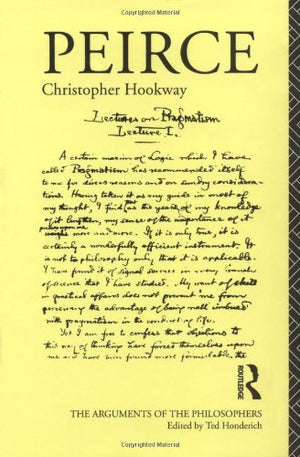 PEIRCE
Christopher Hookway
Lectures on Pragmatism
Lecture I.
A certain maxim of Logic which I have
called Pragmatism has recommended itself
to me for divers reasons and on sundry considera-
tions. Having taken it as my guide in most of
my thought, I find as the years of my knowledge
of it lengthen, my sense of the importance of it
presses upon me
more and more. If it is only true, it is
certainly a wonderfully efficient instrument. It
is not to philosophy only that it is applicable.
I have found it of signal service in every branch
of science that I have studied. My want of skill
in practical affairs does not prevent me from
perceiving the advantage of being well imbued
with pragmatism in the conduct of life.
Yet I am free to confess that objections to
this way of thinking have forced themselves upon
me and have been found more formidable the
ROUTLEDGE
THE ARGUMENTS OF THE PHILOSOPHERS
Edited by Ted Honderich